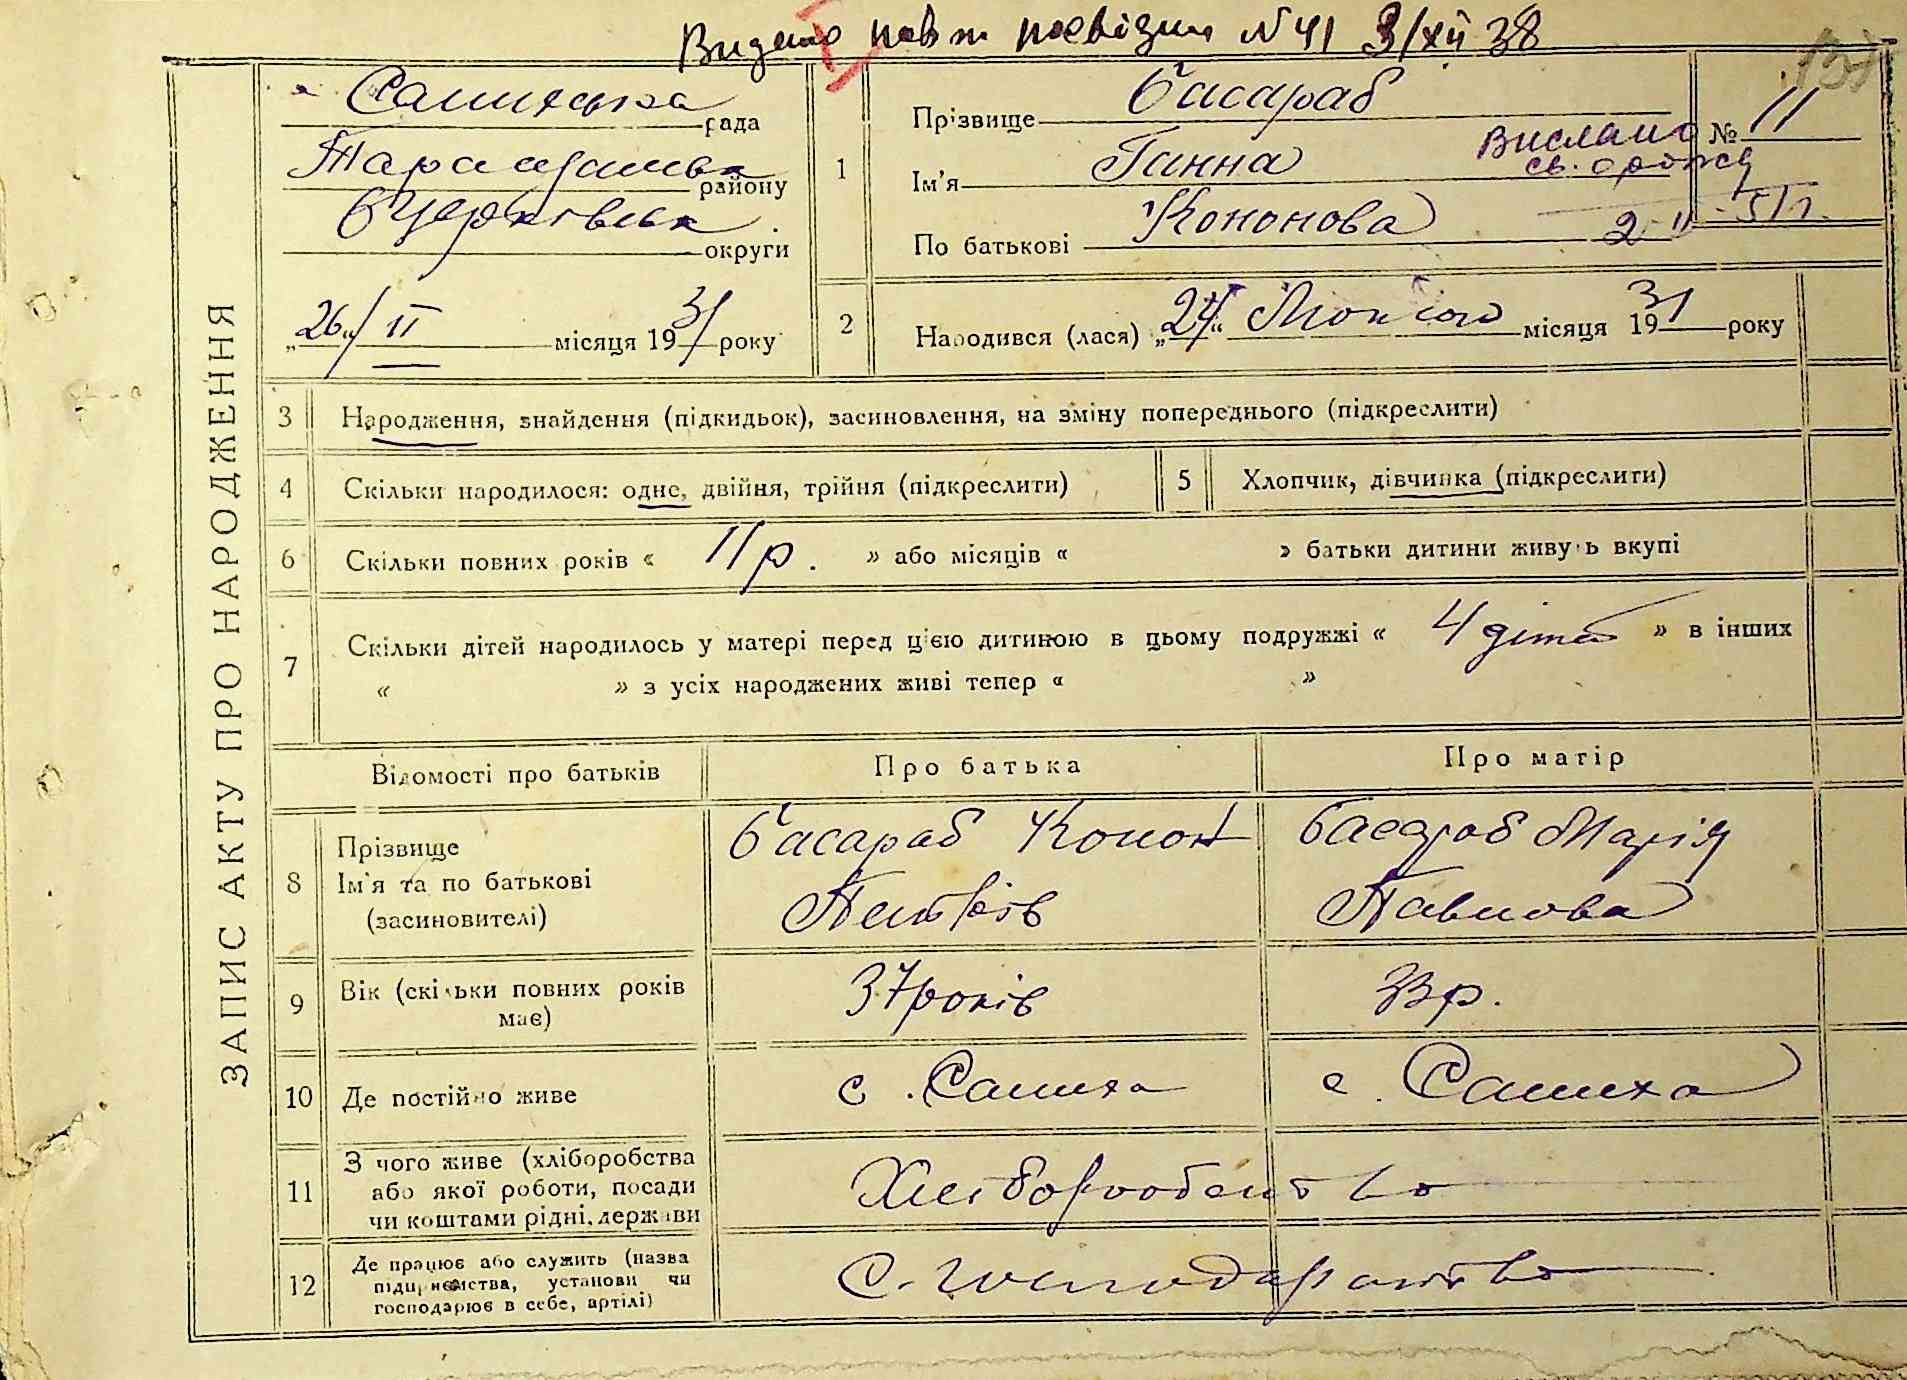 Видано повт посвідку N 41 3/XII 38
Салиська рада
Таращанськ району
БЦерківськ округи
„26“/ II місяця 1931 року
ЗАПИС АКТУ ПРО НАРОДЖЕННЯ
1
Прізвище Басараб
Ім'я Ганна
По батькові Кононова
№ 11
Вислано
св. о рожд
2-II-51 г.
2
Народився (лася) „24“ Лютого місяця 1931 року
3 Народження, знайдення (підкидьок), засиновлення, на зміну попереднього (підкреслити)
4 Скільки народилося: одне, двійня, трійня (підкреслити)
5 Хлопчик, дівчинка (підкреслити)
6 Скільки повних років « 11 р. » або місяців « » батьки дитини живуть вкупі
7 Скільки дітей народилось у матері перед цією дитиною в цьому подружжі « 4 дітей » в інших
« » з усіх народжених живі тепер « »
Відомості про батьків
Про батька
Про матір
8 Прізвище
Ім'я та по батькові
(засиновителі)
Басараб Конон
Басараб Марія
Павлова
9 Вік (скільки повних років
має)
37 років
33 р.
10 Де постійно живе
с. Салиха
с. Салиха
11 З чого живе (хліборобства
або якої роботи, посади
чи коштами рідні, держави
Хліборобство
12 Де працює або служить (назва
підприємства, установи чи
господарює в себе, артілі)
С. господарство